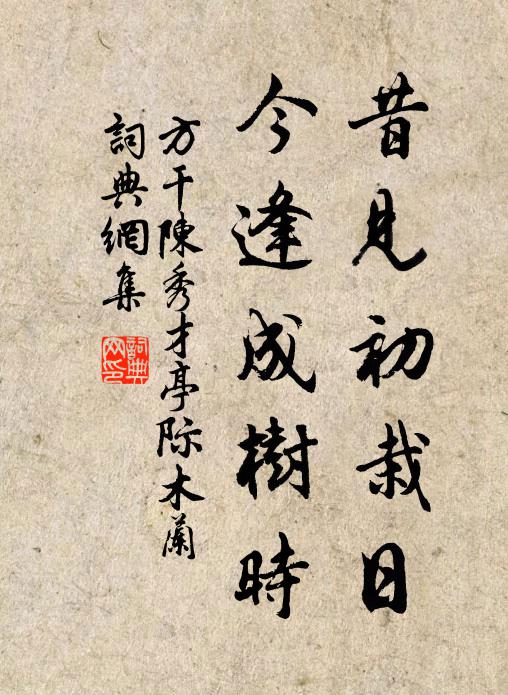 昔見初栽日
今逢成樹時
方干陳秀才亭際木蘭
詞典網集
詞典网印